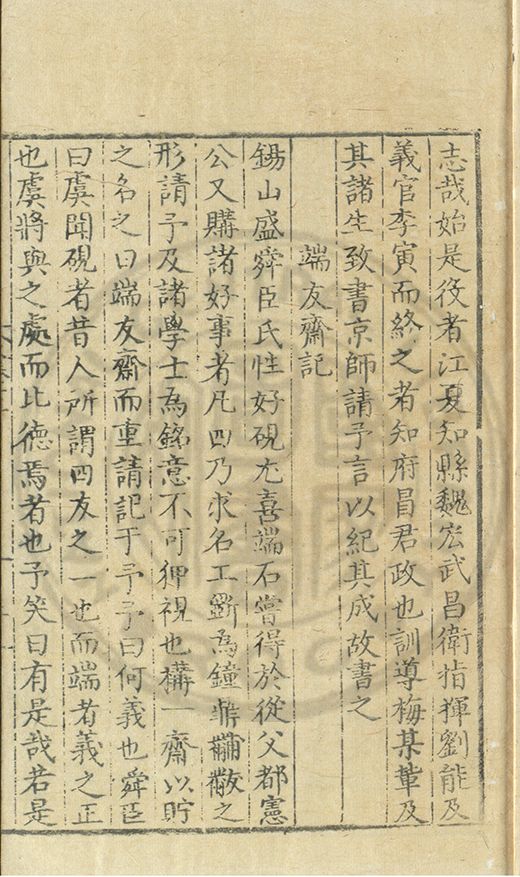 志哉始是役者江夏知縣魏宏武昌衛指揮劉能及
義官李寅而終之者知府冒君政也訓導梅某輩及
其諸生致書京師請予言以紀其成故書之
端友齋記
錫山盛舜臣氏性好硯尤喜端石嘗得於從父都憲
公又購諸好事者凡四乃求名工斲為鐘鼎黼黻之
形請予及諸學士為銘意不可狎視也構一齋以貯
之名之曰端友齋而重請記于予予曰何義也舜臣
曰虞聞硯者昔人所謂四友之一也而端者義之正
也虞將與之處而比德焉者也予笑曰有是哉君是